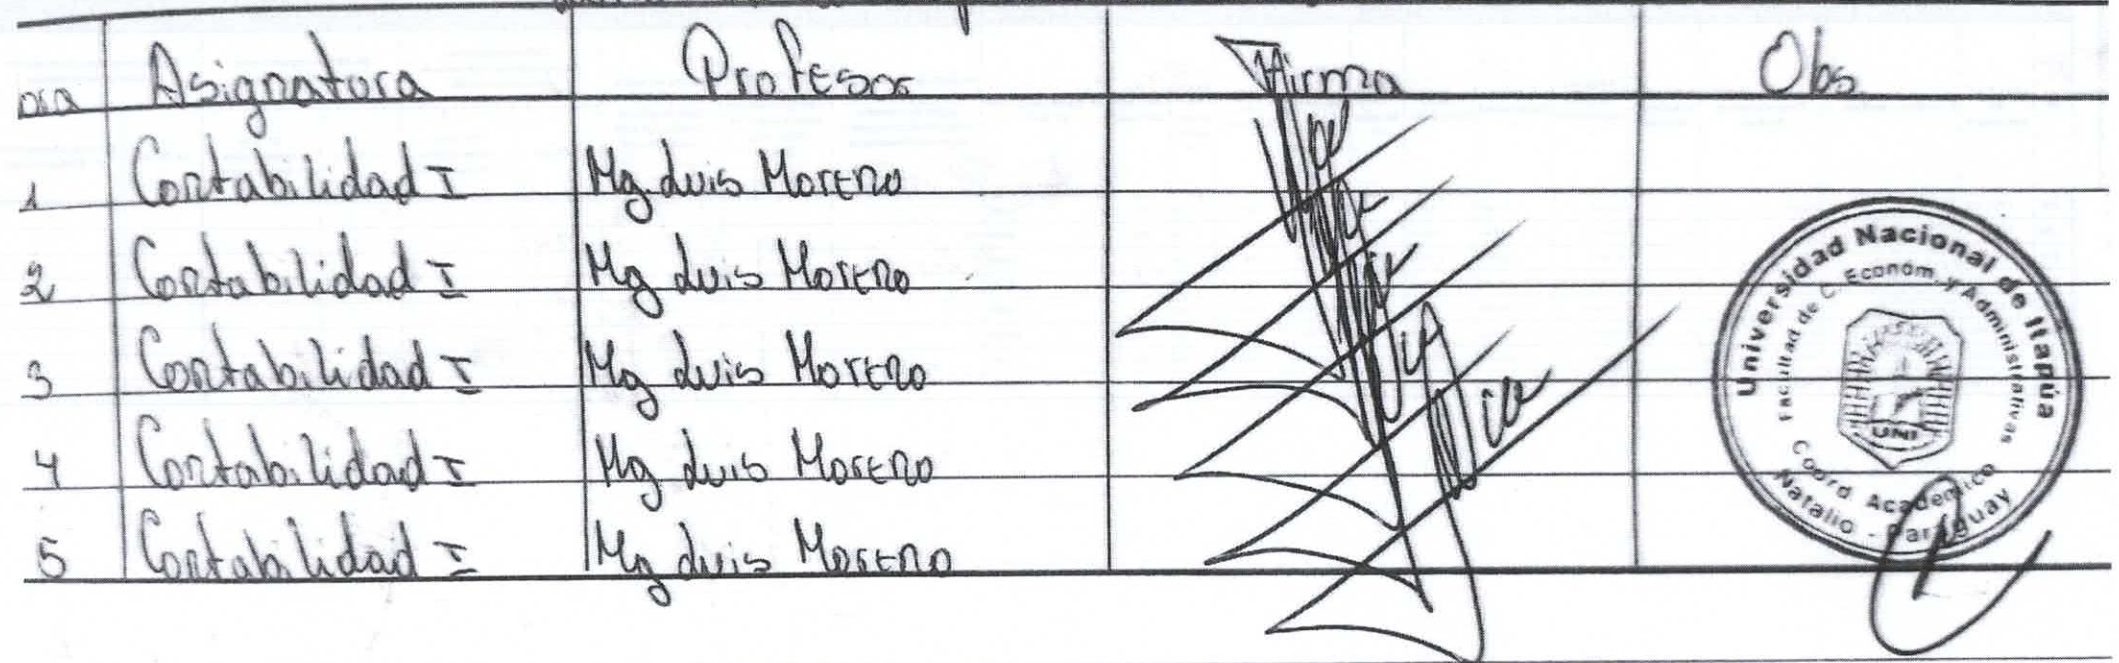 ora Asignatura Profesor Firma Obs
1 Contabilidad I Mg Luis Moreno
2 Contabilidad I Mg Luis Moreno
3 Contabilidad I Mg Luis Moreno
4 Contabilidad I Mg Luis Moreno
5 Contabilidad I Mg Luis Moreno
Universidad Nacional de Itapúa
Facultad de C. Económ. y Administrativas
UNI
Coord Academico
Natalio - Paraguay